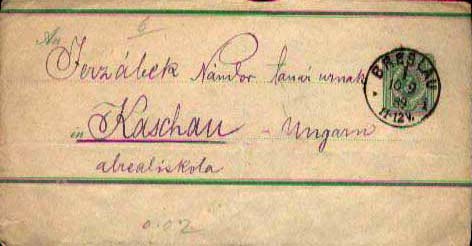 6
An
Jerzábek Nándor tanár urnak
in Kaschau - Ungarn
alrealiskola
BRESLAU
1
10 9
89
11-12V.
0.02